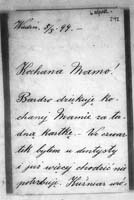 Wiedeń, 5/3. 99. –
Kochana Mamo!
Bardzo dziękuję ko-
chanej Mamie za ła-
dną kartkę. We czwar-
tek byłem u dentysty
i już więcej chodzić nie
potrzebuję. Kuśnierz